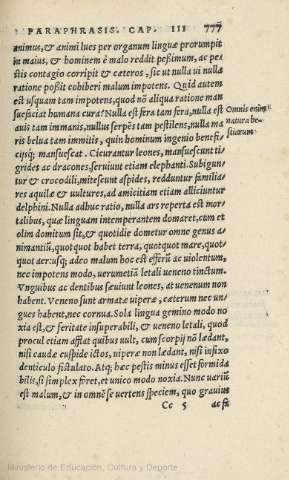 PARAPHRASIS. CAP. III 777
animus, & animi lues per organum linguæ prorumpit
in maius, & hominem è malo reddit peßimum, ac pe-
stis contagio corripit & cæteros, sic ut nulla ui nulla
ratione poßit cohiberi malum impotens. Quid autem
est usquam tam impotens, quod nõ aliqua ratione man
suefaciat humana cura? Nulla est fera tam fera, nulla est
auis tam immanis, nullus serpẽs tam pestilens, nulla ma
ris belua tam immitis, quin hominum ingenio benefi-
cijsq; mansuescat. Cicurantur leones, mansuescunt ti-
grides ac dracones. seruiunt etiam elephanti. Subigun-
tur & crocodili, mitescunt aspides, redduntur familia-
res aquilæ & uultures, ad amicitiam etiam alliciuntur
delphini. Nulla adhuc ratio, nulla ars reperta est mor-
talibus, quæ linguam intemperantem domaret, cum et
olim domitum sit, & quotidie dometur omne genus a-
nimantiũ, quotquot habet terra, quotquot mare, quot-
quot aer: usq; adeo malum hoc est efferũ ac uiolentum,
nec impotens modo, uerumetiã letali ueneno tinctum.
Vnguibus ac dentibus sæuiunt leones, at uenenum non
habent. Veneno sunt armatæ uiperæ, cæterum nec un-
gues habent, nec cornua. Sola lingua gemino modo no
xia est, & feritate insuperabili, & ueneno letali, quod
procul etiam afflat quibus uult, cum scorpij nõ lædant,
nisi caudæ cuspide ictos, uiperæ non lædant, nisi infixo
denticulo fistulato. Atq; hæc pestis minus esset formida
bilis, si simplex foret, et unico modo noxia. Nunc uariũ
est malum, & in omnẽ se uertens speciem, quo grauius
Cc 5 ac fa
Omnis enim
natura be-
stiarum
Ministerio de Educación, Cultura y Deporte